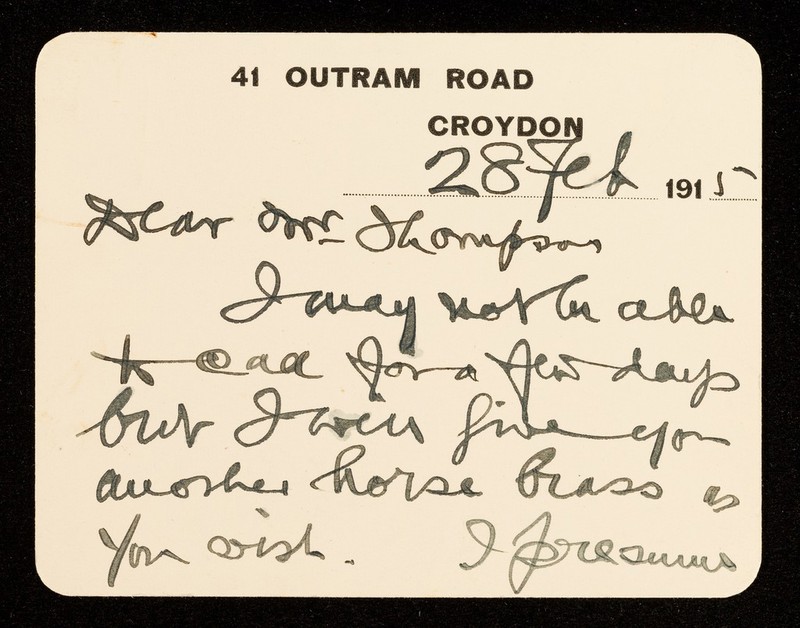 41 OUTRAM ROAD
CROYDON
28 Feb 1915
Dear Mr. Thompson
I may not be able
to call for a few days
but I will give you
another horse brass as
you wish. I presume